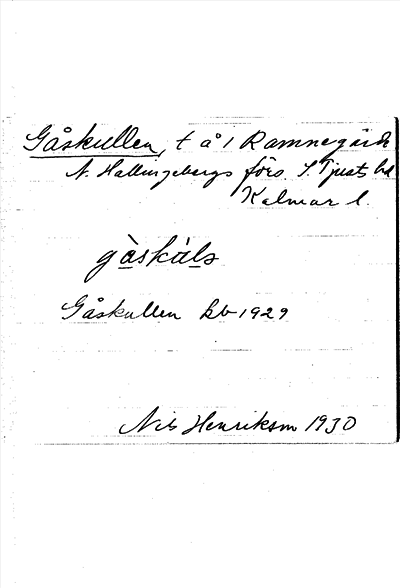 Gåskullen, t å 1 Ramnegärde
N. Hallingebergs förs. S. Tjusts hd
Kalmar l.
gàskùls
Gåskullen kb 1929
Nils Henrikson 1930